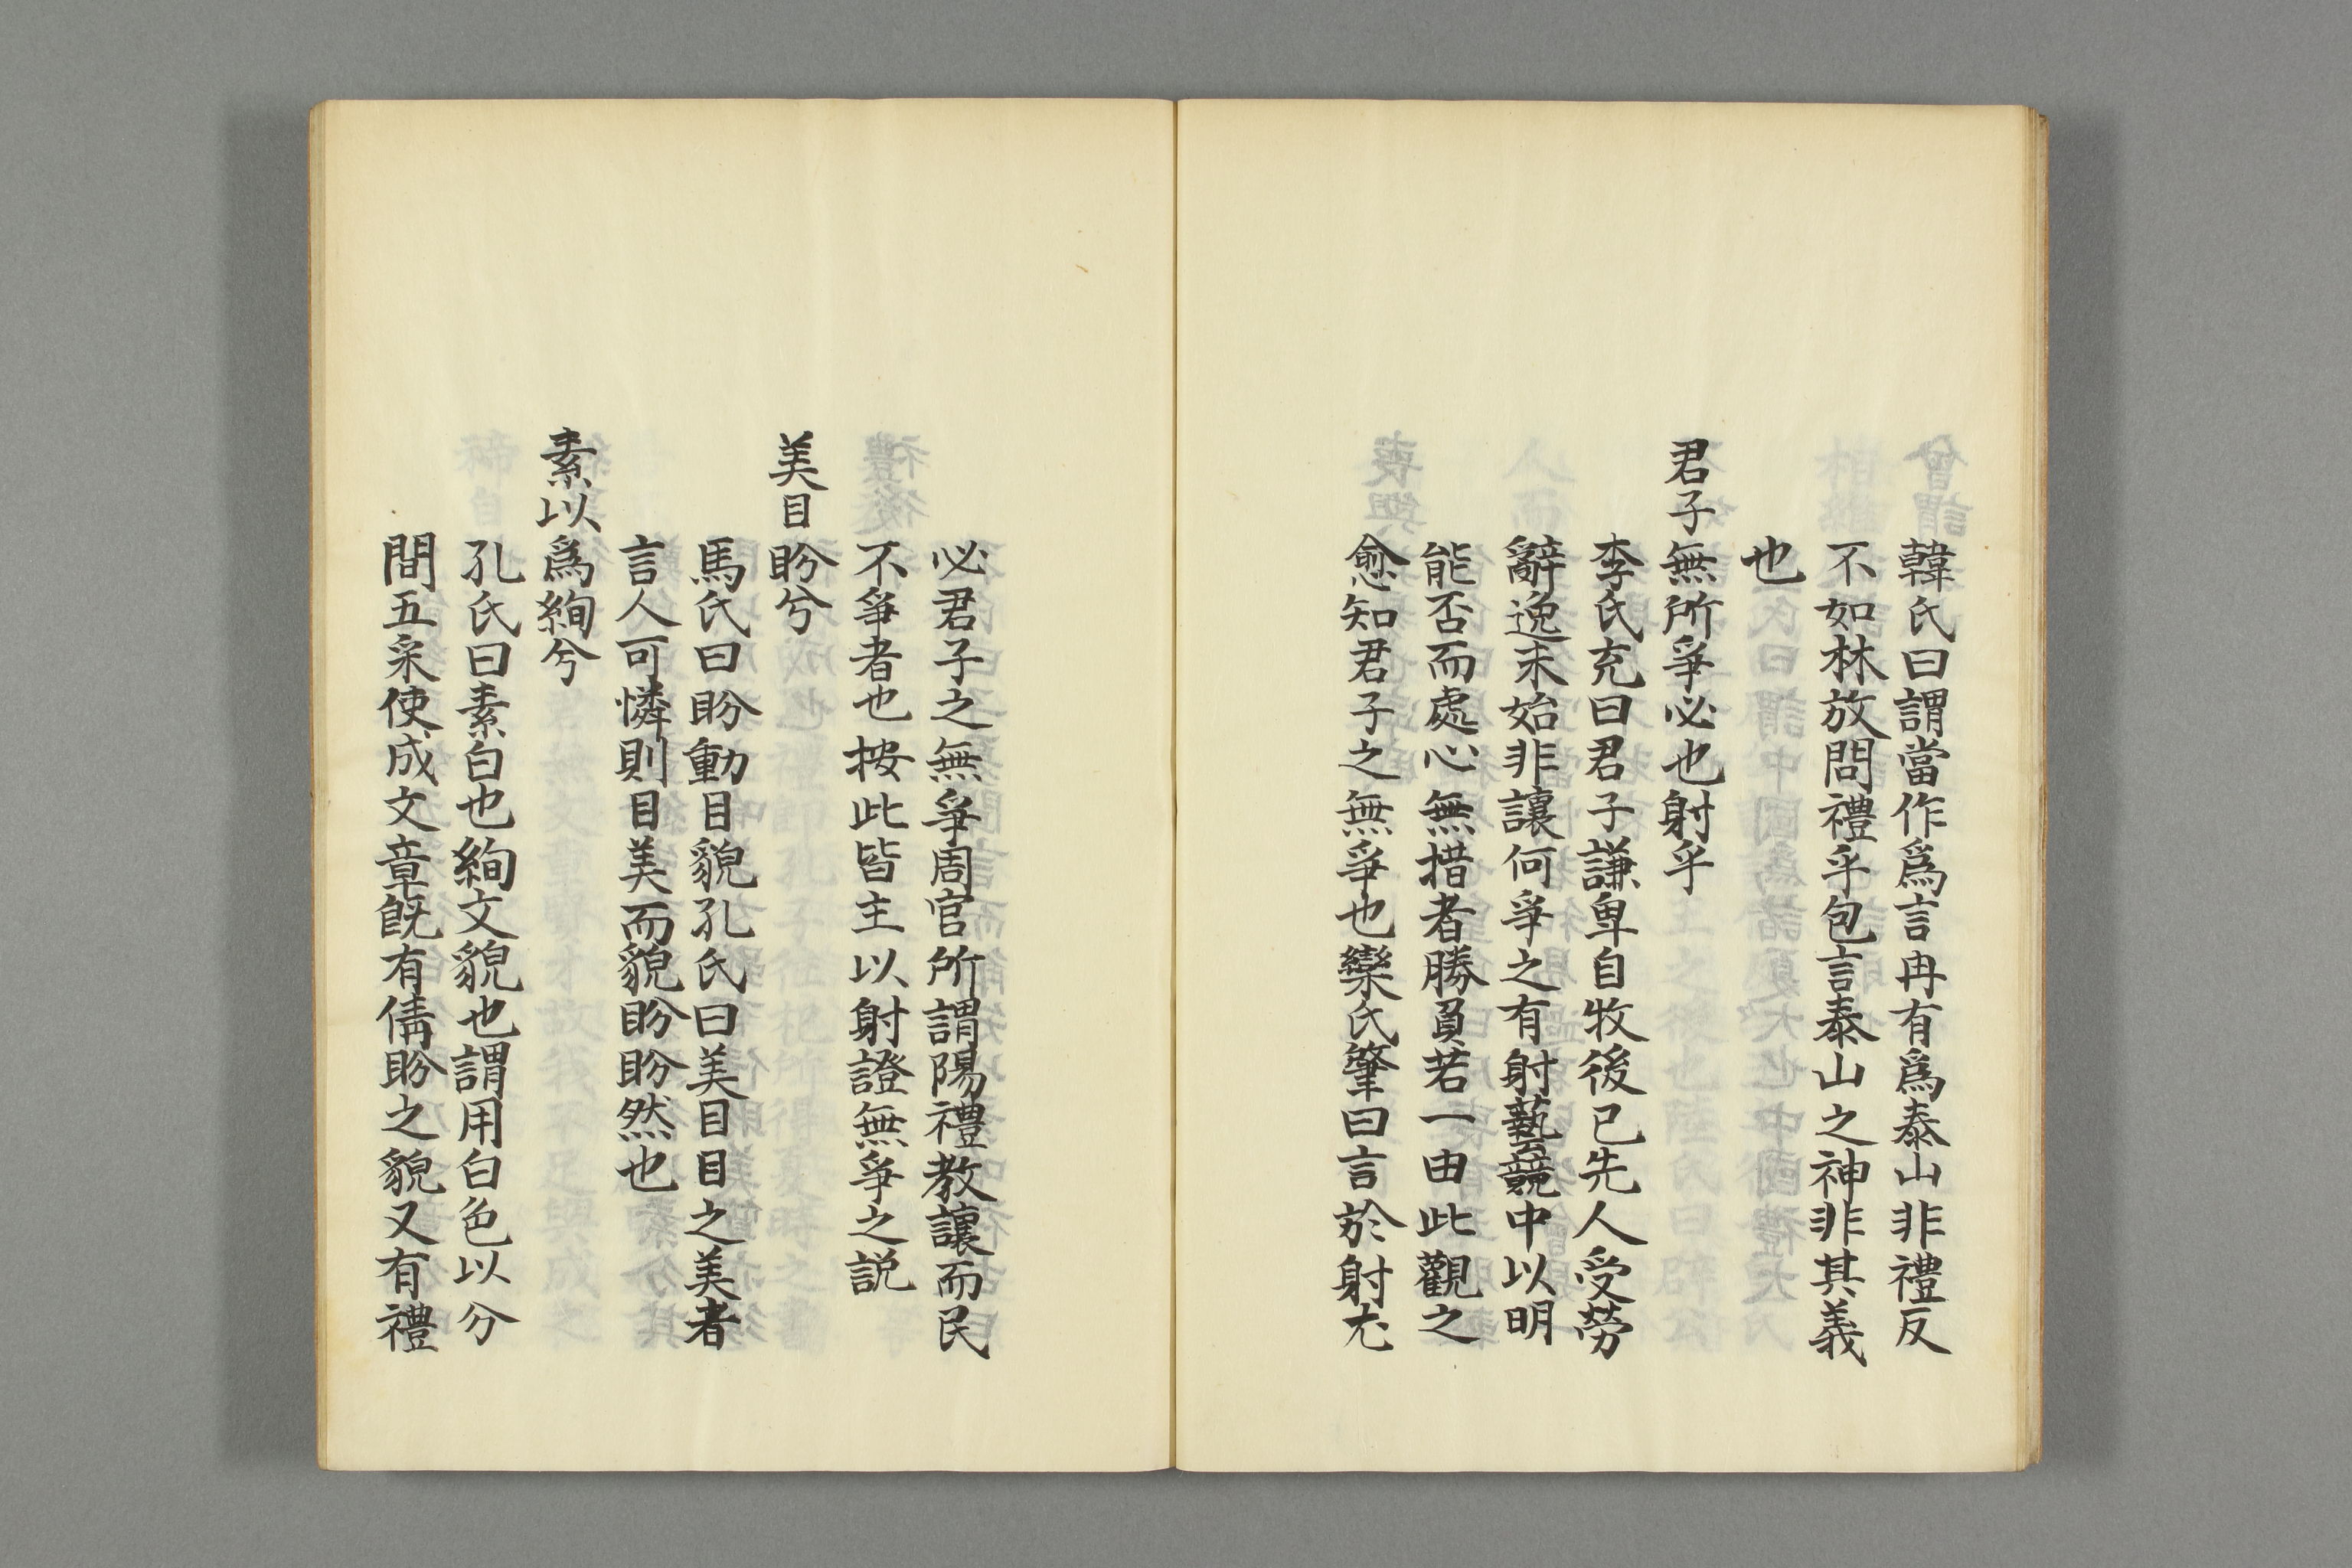 韓氏曰謂當作爲言冉有爲泰山非禮反
不如林放問禮乎包言泰山之神非其義
也
君子無所爭必也射乎
李氏充曰君子謙卑自牧後已先人受勞
辭逸未始非讓何爭之有射藝競中以明
能否而處心無措者勝負若一由此觀之
愈知君子之無爭也欒氏肇曰言於射尤
必君子之無爭周官所謂陽禮教讓而民
不爭者也按此皆主以射證無爭之説
美目盼兮
馬氏曰盼動目貌孔氏曰美目目之美者
言人可憐則目美而貌盼盼然也
素以爲絢兮
孔氏曰素白也絢文貌也謂用白色以分
間五采使成文章既有倩盼之貌又有禮